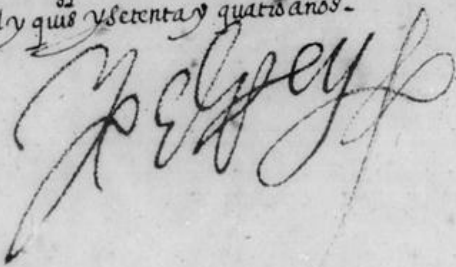 y quis y setenta y quatro años-
Yo El Rey